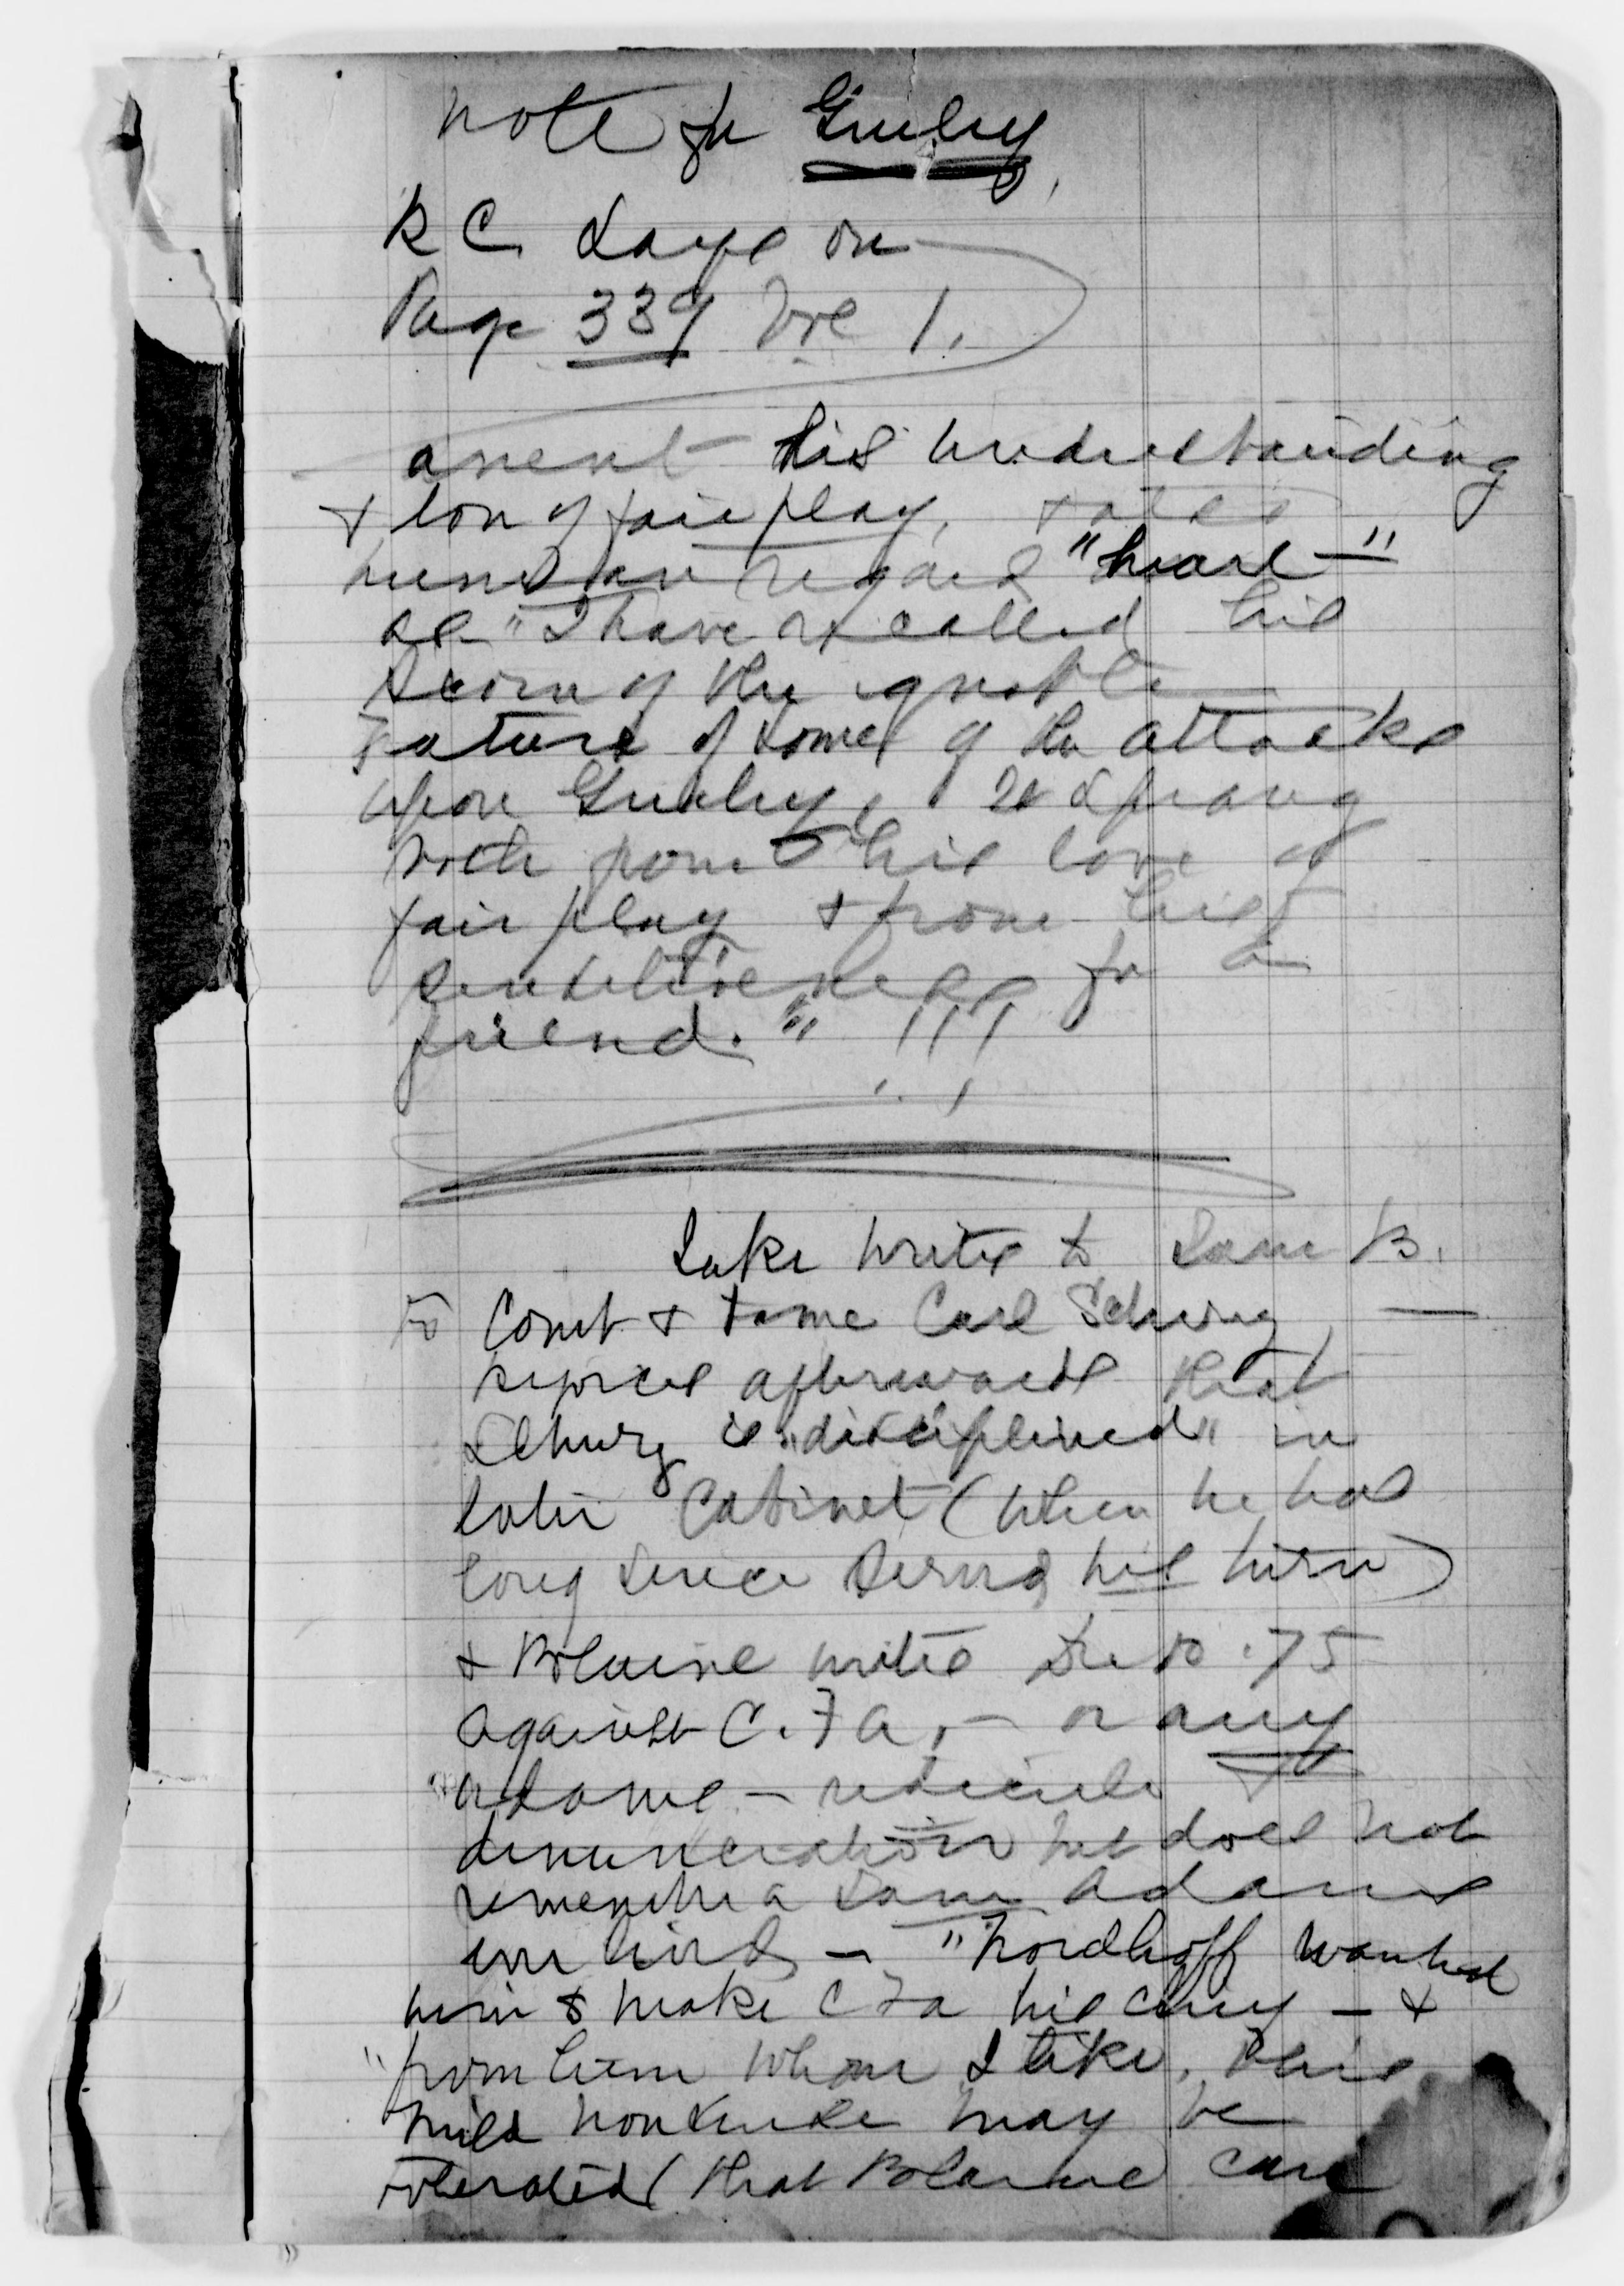 note for Greeley
R C says on
Page 339 Vol 1.
anent his understanding
& love of fair play,
human regard "heart"
as "I have recalled his
scorn of the ignoble
nature of some of the attacks
upon Greeley, It sprang
both from his love of
fair play & from his
sensitiveness for a
friend." !!!
writes to Sam B.
to Court & tame Carl Schurz —
rejoices afterwards that
Schurz is "disciplined" in
later Cabinet (when he has
long since served his turn)
& Blaine writes Dec 10 .75
against C. F A, — or any
Adams — ridicule &
denunciation but does not
remember a Sam Adams
— "Nordhoff wanted
him to make C F A his — &
"from him whom I like, this
mild nonsense may be
tolerated (that Blaine can